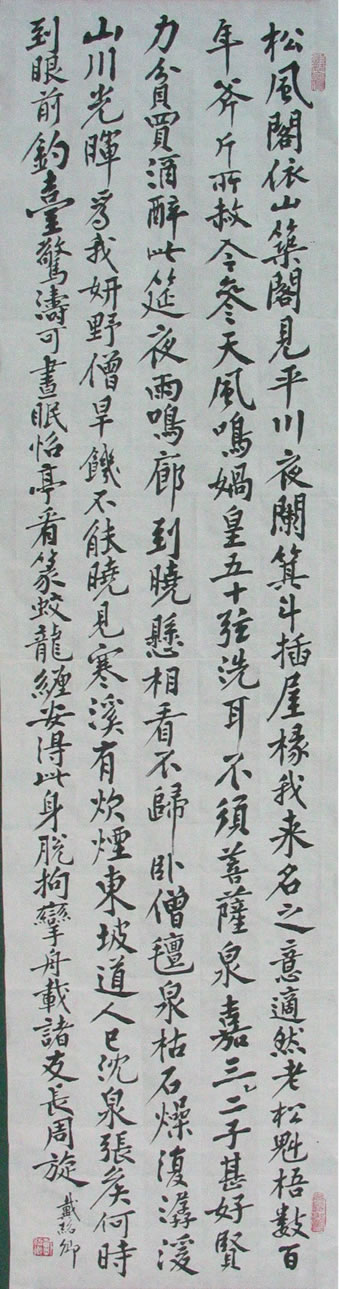 松風閣依山築閣見平川夜闌箕斗插屋椽我来名之意適然老松魁梧數百
年斧斤所赦今參天風鳴媧皇五十弦洗耳不須菩薩泉嘉三二子甚好賢
力貧買酒醉此筵夜雨鳴廊到曉懸相看不歸卧僧氈泉枯石燥復潺湲
山川光暉爲我妍野僧旱饑不能曉見寒溪有炊煙東坡道人已沈泉張矦何時
到眼前釣臺驚濤可晝眠怡亭看篆蛟龍纏安得此身脫拘攣舟載諸友長周旋
戴紹卿